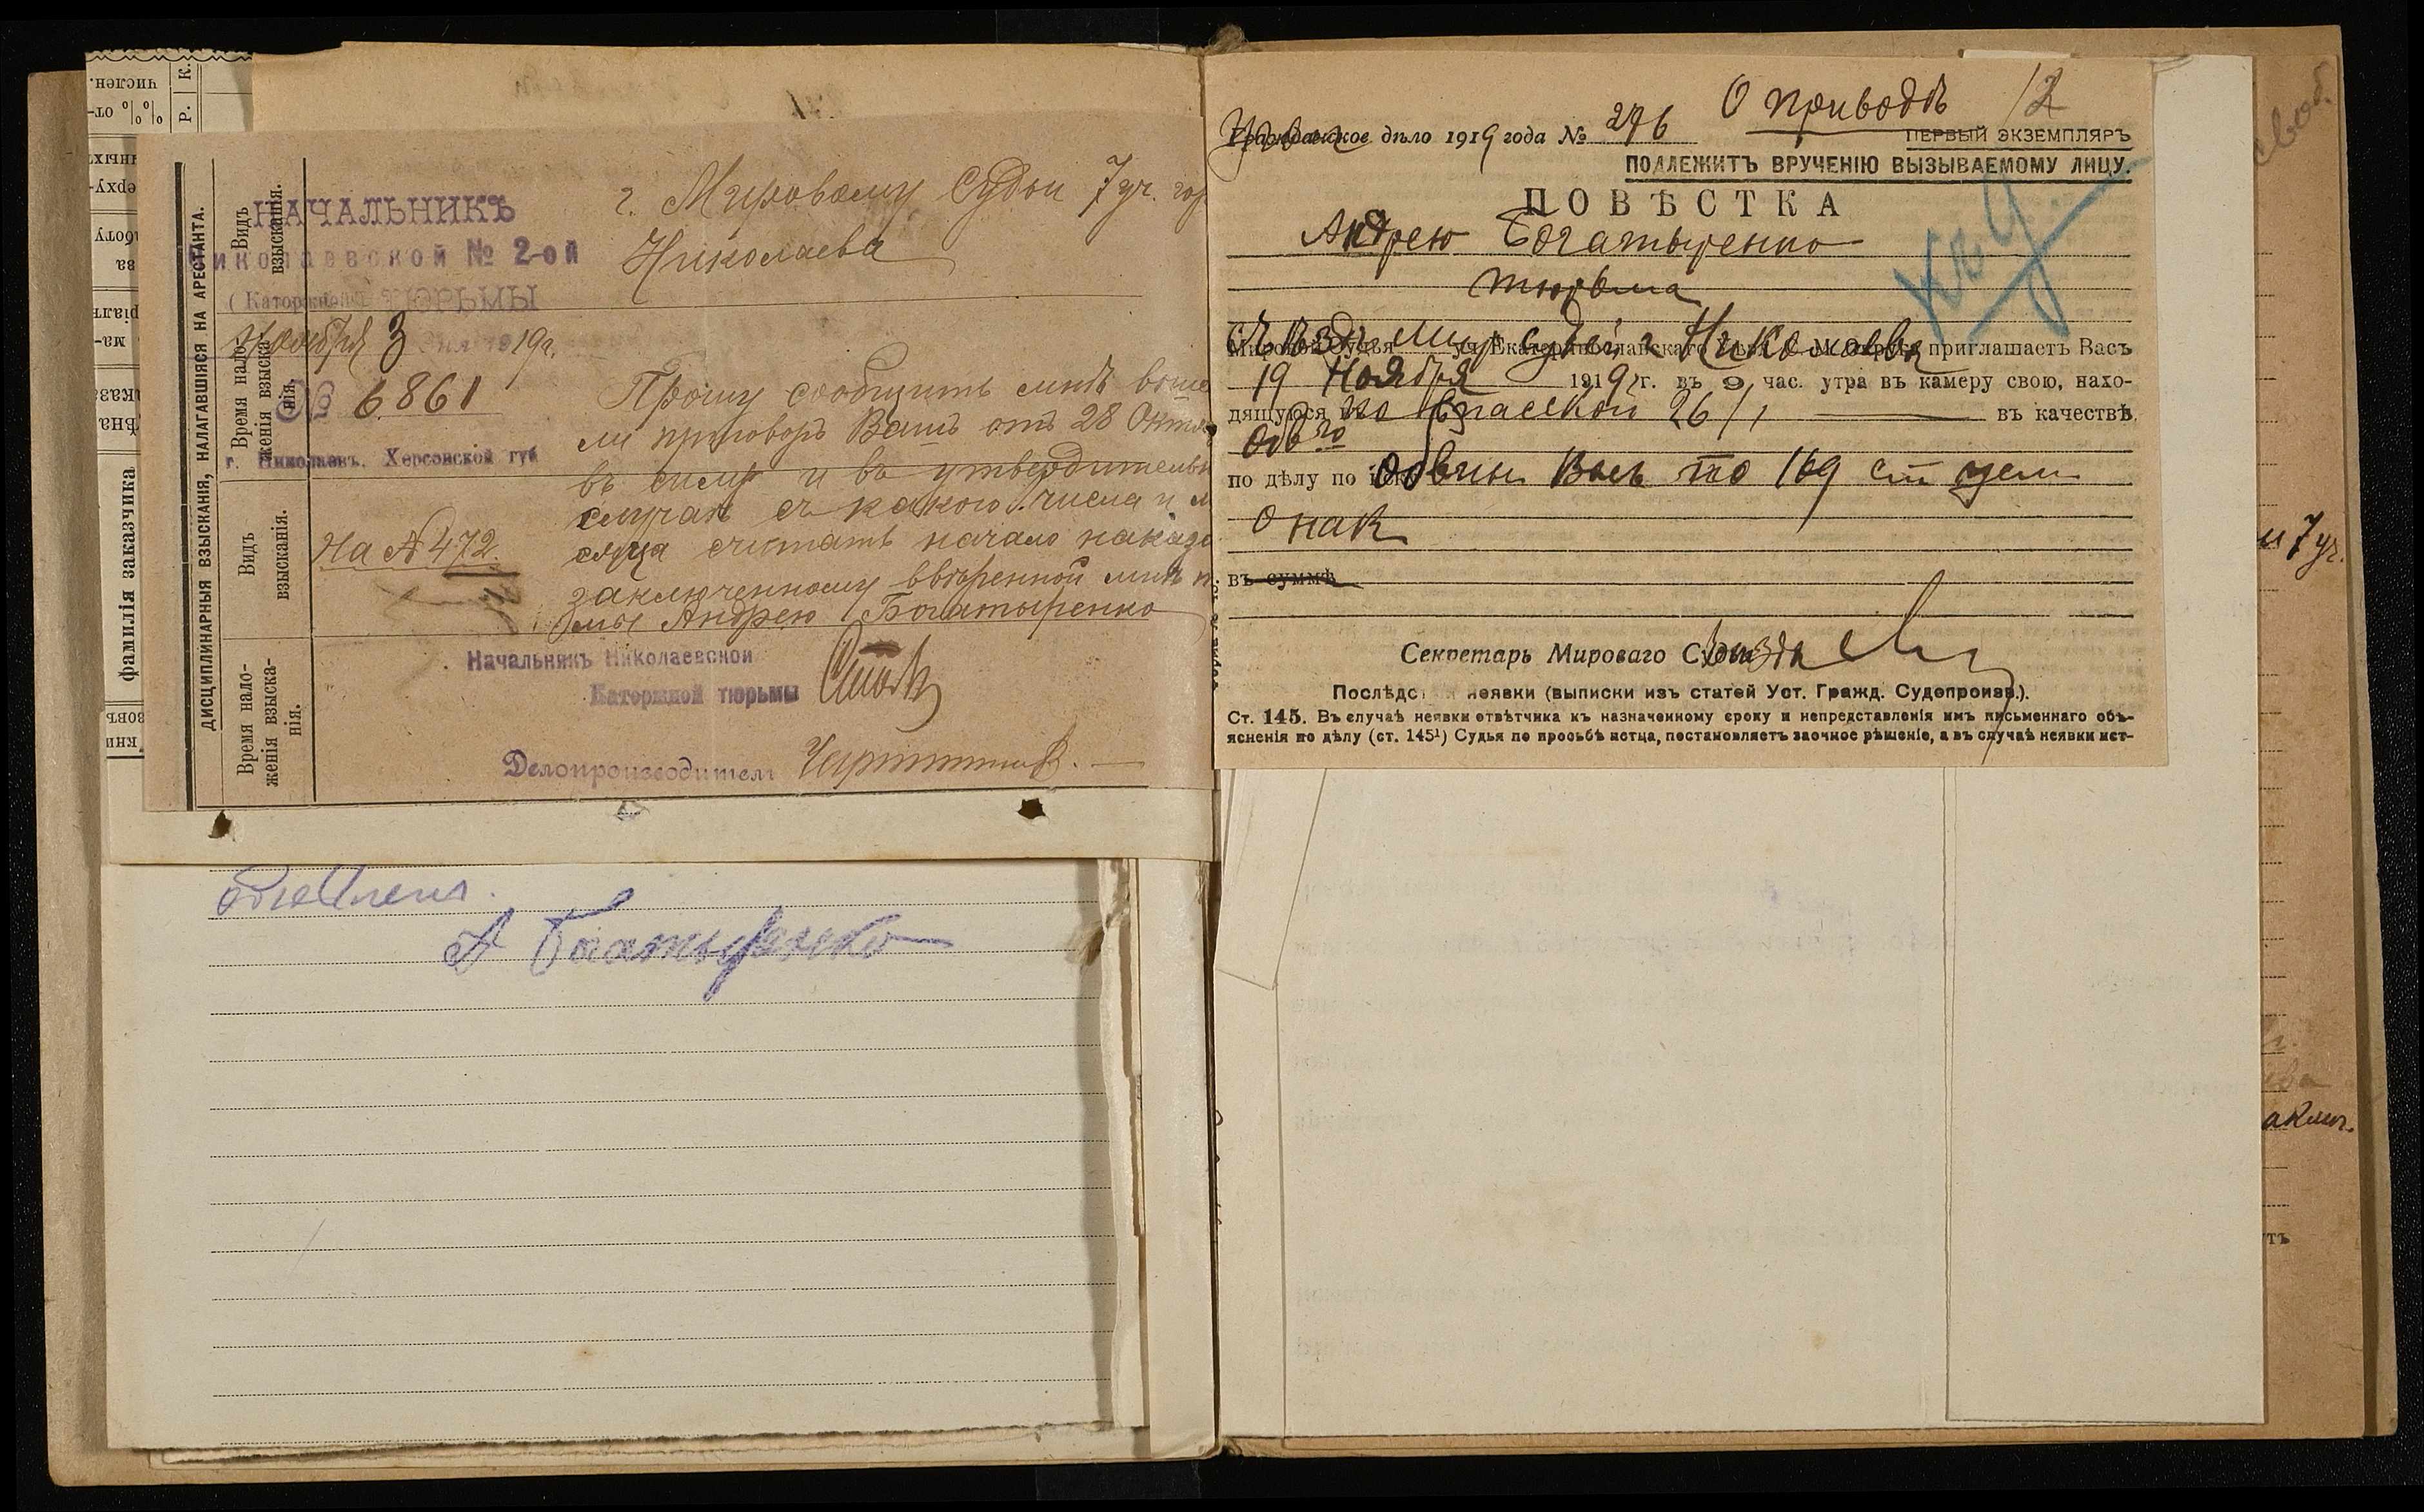 числен.
% % от-
Р. К.
фамилія заказчика
ДИСЦИПЛИНАРНЫЯ ВЗЫСКАНІЯ, НАЛАГАВШІЯСЯ НА АРЕСТАНТА.
Видъ
взысканія.
Время нало-
женія взыска-
нія.
Видъ
взысканія.
Время нало-
женія взыска-
нія.
НАЧАЛЬНИКЪ
Николаевской № 2-ой
(Каторжной) ТЮРЬМЫ
Ноября 3 дня 1919г.
№ 6861
г. Николаевъ, Херсонской губ
На № 472.
г. Мировому Судьи 7 уч. гор
Николаева
Прошу сообщить мнѣ воше
ли приговоръ Вашъ отъ 28 Октяб
въ силу и въ утвердительн
случаѣ съ какого числа и м
сяца считать начало наказа
заключенному ввѣренной мнѣ т
мы Андрею Богатыренко
Начальникъ Николаевской
Каторжной тюрьмы
Делопроизводитель
А Богатыренко
О приводѣ 12
Гражданское дѣло 1919 года № 296
ПЕРВЫЙ ЭКЗЕМПЛЯРЪ
ПОДЛЕЖИТЪ ВРУЧЕНІЮ ВЫЗЫВАЕМОМУ ЛИЦУ.
ПОВѢСТКА
Андрею Богатыренко
тюрьма
Съѣздъ Мир судей г Николаева приглашаетъ Васъ
19 Ноября 1919 г. въ 9 час. утра въ камеру свою, нахо-
дящуюся по Спасской 26/1 въ качествѣ
обв го
по дѣлу по обвин Васъ по 169 ст уст
о нак
въ суммѣ
Секретарь Мироваго Съѣзда
Послѣдствія неявки (выписки изъ статей Уст. Гражд. Судопроизв.).
Ст. 145. Въ случаѣ неявки отвѣтчика къ назначенному сроку и непредставленія имъ письменнаго объ-
ясненія по дѣлу (ст. 145¹) Судья по просьбѣ истца, постановляетъ заочное рѣшеніе, а въ случаѣ неявки ист-
7 уч.